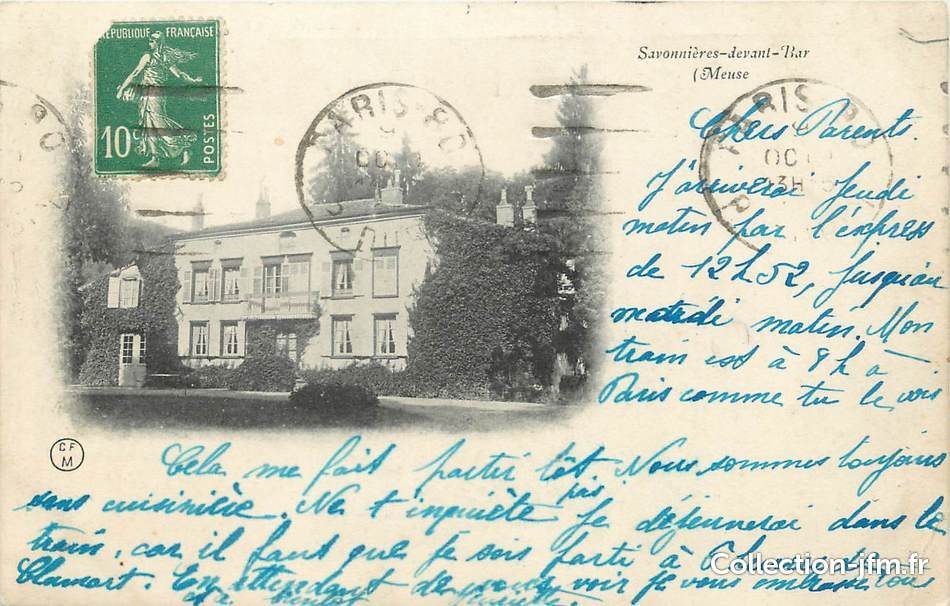 RÉPUBLIQUE FRANÇAISE
10c POSTES
PARIS
OCT
PARIS
OCT
Savonnières-devant-Bar
(Meuse
Chers Parents.
J'arriverai Jeudi
matin par l'express
de 12h52, Jusqu'au
mardi matin. Mon
train est à 8h à
Paris comme tu le vois
Cela me fait partir tôt. Nous sommes toujours
sans cuisinière. Ne t'inquiète pas Je déjeunerai dans le
train, car il faut que je sois parti à
Clamart. En attendant de vous voir je vous embrasse tous
bientôt
CF
M
Collection-jfm.fr